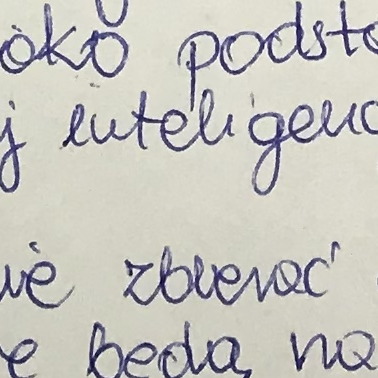 oko podsto
j inteligenc
wie zbierać
ę będą na